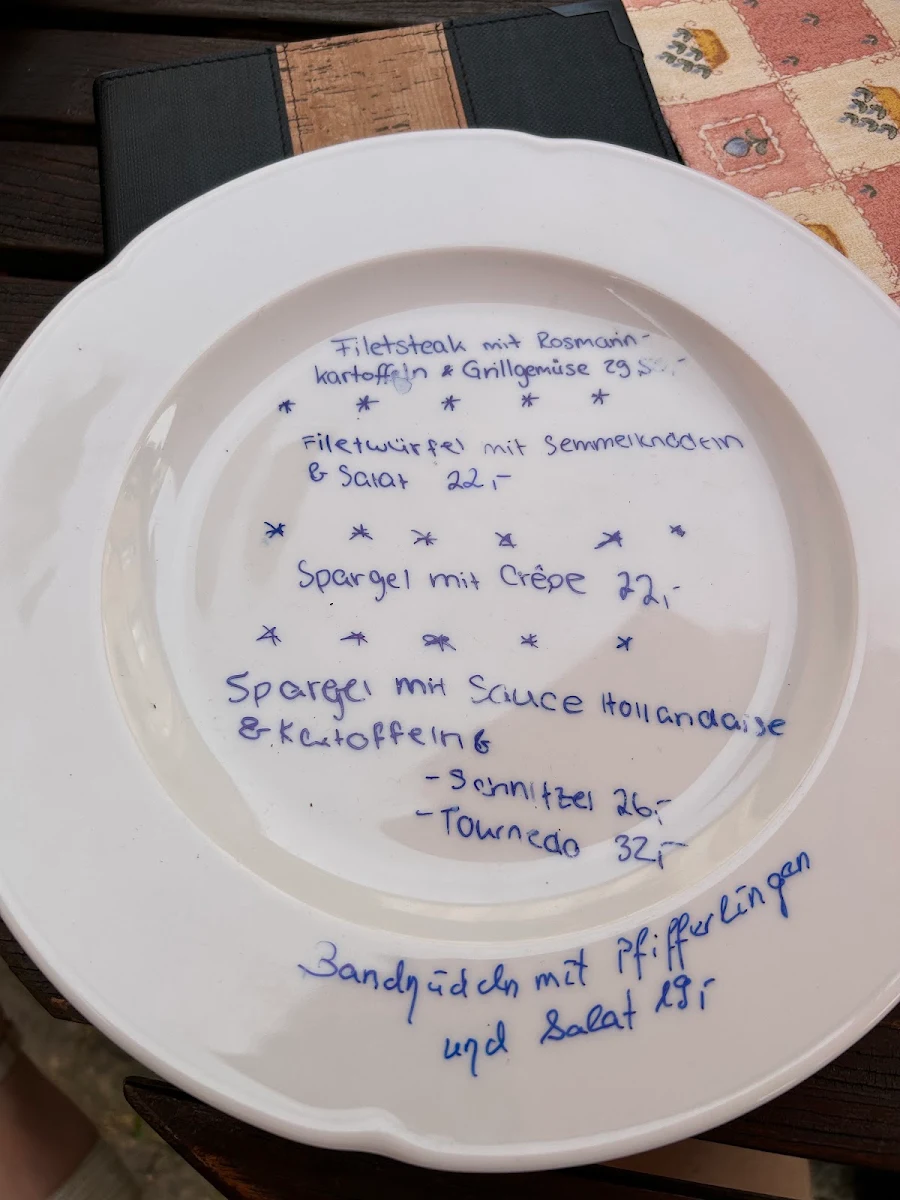 Filetsteak mit Rosmarin-
kartoffeln & Grillgemüse 29
* * * * *
Filetwürfel mit Semmelknödeln
& Salat 22,-
* * * * * *
Spargel mit Crêpe 22,-
* * * * *
Spargel mit Sauce Hollandaise
& Kartoffeln &
- Schnitzel 26,-
- Tournedo 32,-
Bandnüdeln mit Pfifferlingen
und Salat 19,-